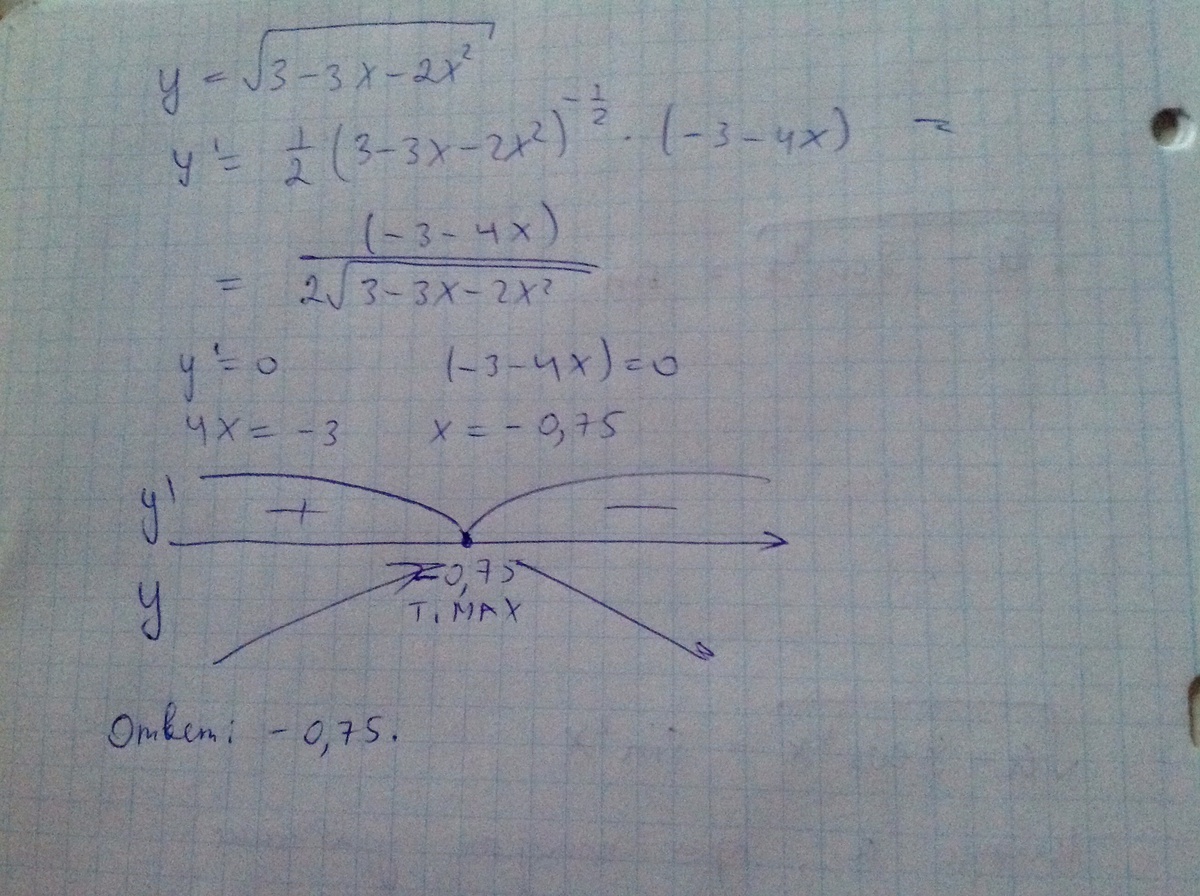 y = √3-3x-2x²
y' = 1/2 (3-3x-2x²)^-1/2 · (-3-4x) =
= (-3-4x) / 2√3-3x-2x²
y' = 0 (-3-4x) = 0
4x = -3 x = -0,75
y' + —
-0,75
y т. MAX
Ответ: -0,75.